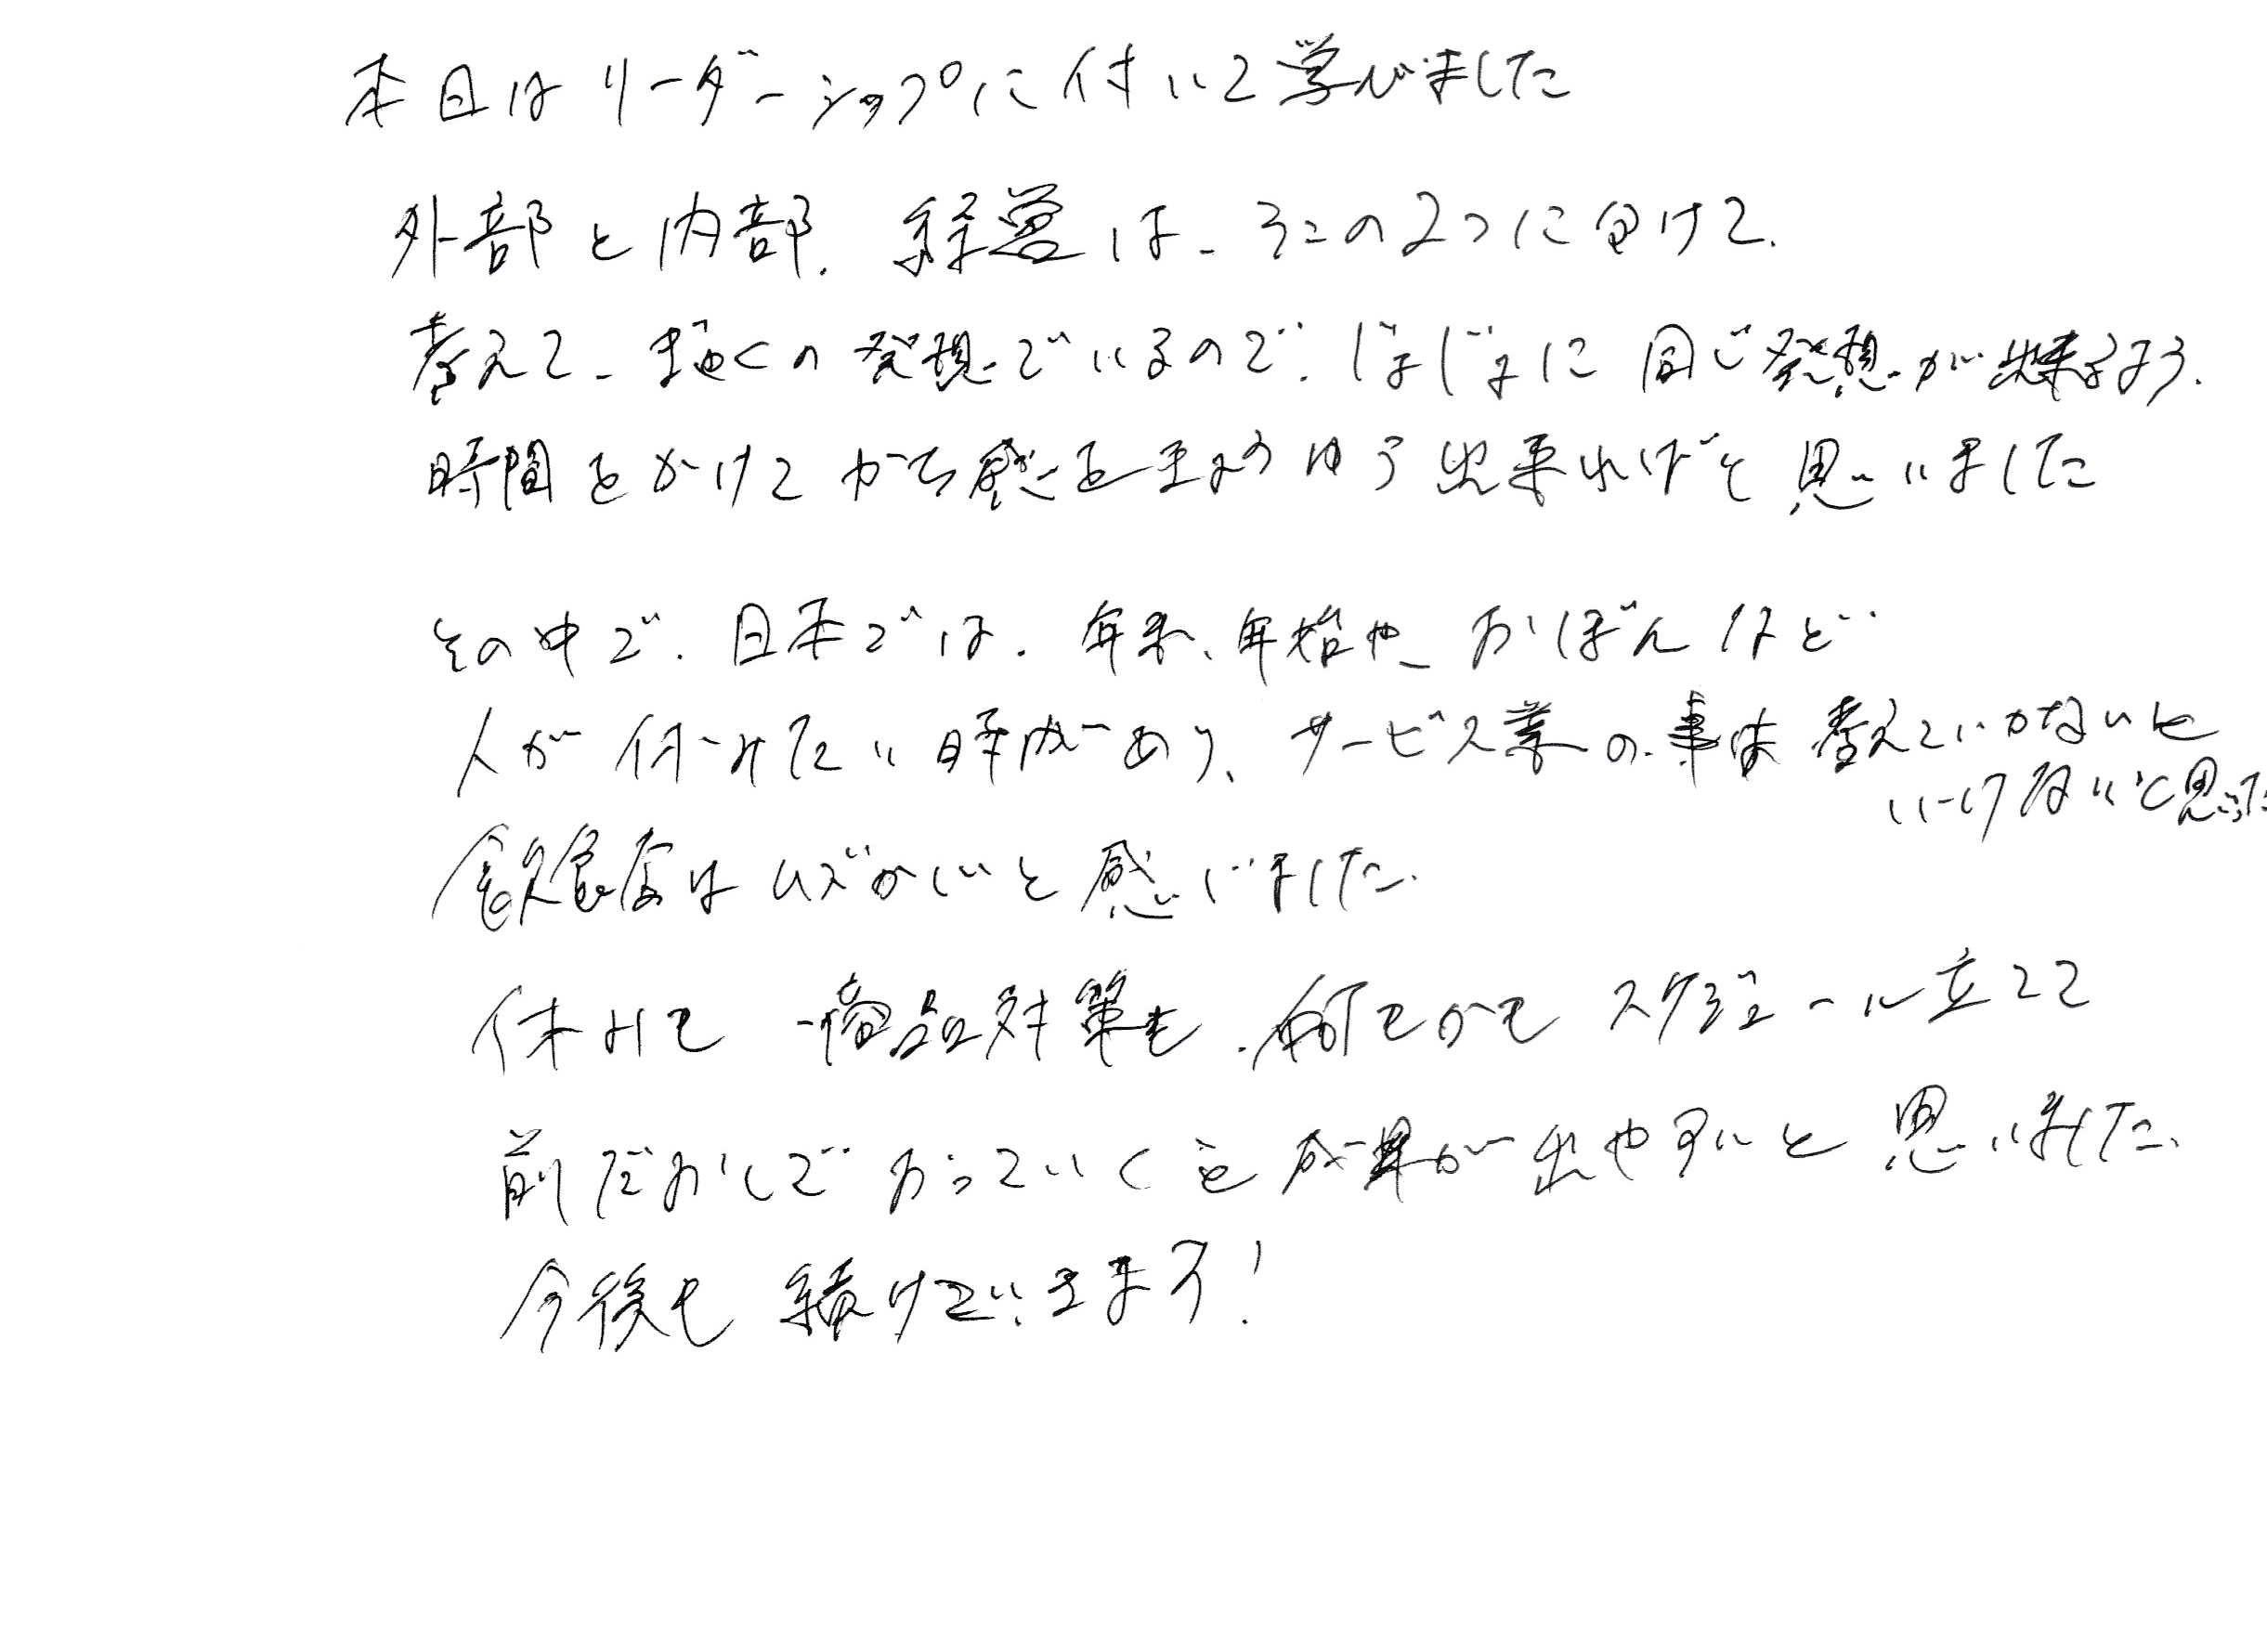 本日はリーダーシップに付いて学びました
外部と内部、経営は、そこの2つに分けて、
考えて、まゆくの発想でいるので、じょじょに同じ発想が出来るよう、
時間をかけて 出来ればと思いました
その中で、日本では、年末、年始や、おぼんなど
人が 時があり、サービス業の事は考えていかないと
いけないと思った
飲食店はムズかしいと感じました
休みも 商品対策も、何もかもスケジュール立てて
前だおしでおっていくと成果が出やすいと思いました、
今後も続けていきます!